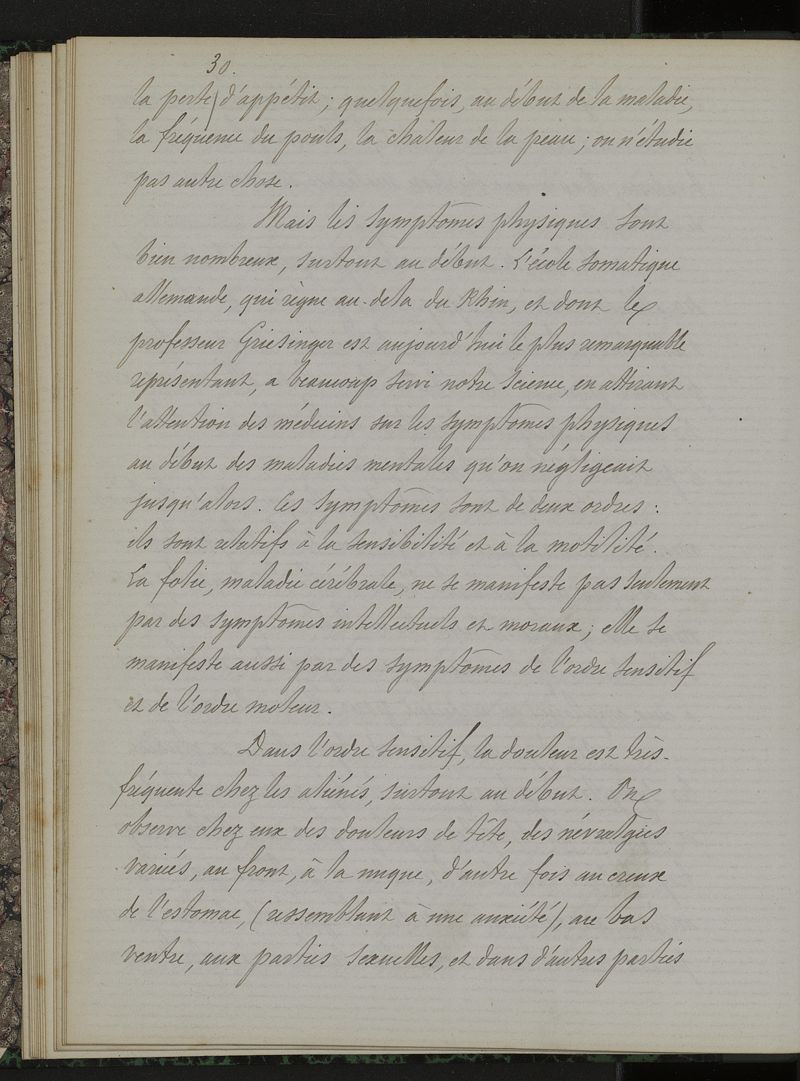 30.
la perte) d'appétit ; quelquefois, au début de la maladie,
la fréquence du pouls, la chaleur de la peau ; on n'étudie
pas autre chose.
Mais les symptômes physiques sont
bien nombreux, surtout au début. L'école somatique
allemande, qui règne au-delà du Rhin, et dont le
professeur Griesinger est aujourd'hui le plus remarquable
représentant, a beaucoup servi notre science, en attirant
l'attention des médecins sur les symptômes physiques
au début des maladies mentales qu'on négligeait
jusqu'alors. Ces symptômes sont de deux ordres :
ils sont relatifs à la sensibilité et à la motilité.
La folie, maladie cérébrale, ne se manifeste pas seulement
par des symptômes intellectuels et moraux ; elle se
manifeste aussi par des symptômes de l'ordre sensitif
et de l'ordre moteur.
Dans l'ordre sensitif, la douleur est très-
fréquente chez les aliénés, surtout au début. On
observe chez eux des douleurs de tête, des névralgies
variées, au front, à la nuque, d'autre fois au creux
de l'estomac, (ressemblant à une anxiété), au bas
ventre, aux parties sexuelles, et dans d'autres parties